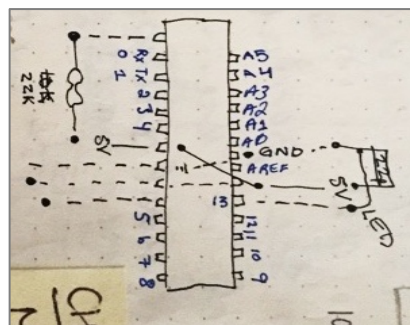 Rx
0
Tx
1
2
3
4
5V
5
6
7
8
22K
A5
A4
A3
A2
A1
A0
GND
AREF
13
12
11
10
9
5V
LED